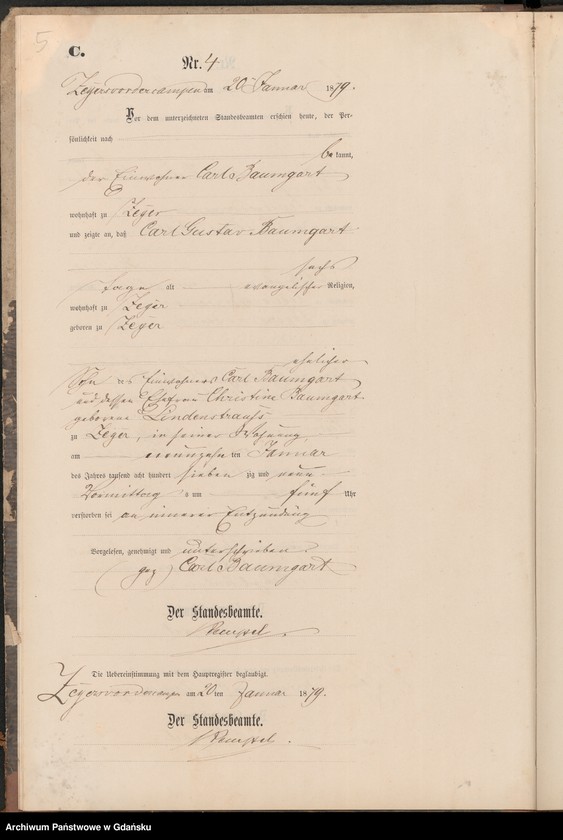 5
C.
Nr. 4
Zeyersvordercampen am 20 Januar 1879.
Vor dem unterzeichneten Standesbeamten erschien heute, der Per-
sönlichkeit nach
be kannt,
der Einwohner Carl Baumgart
wohnhaft zu Zeyer
und zeigte an, daß Carl Gustav Baumgart
sechs
Tage alt evangelischer Religion,
wohnhaft zu Zeyer
geboren zu Zeyer
ehelicher
Sohn des Einwohners Carl Baumgart
und dessen Ehefrau Christine Baumgart
geborene Lindenstrauss
zu Zeyer, in seiner Wohnung
am neunzehn ten Januar
des Jahres tausend acht hundert sieben zig und neun
Vormittag s um fünf Uhr
verstorben sei an innerer Entzündung
Vorgelesen, genehmigt und unterschrieben
(gez) Carl Baumgart
Der Standesbeamte.
Die Uebereinstimmung mit dem Hauptregister beglaubigt.
Zeyersvordercampen am 20 ten Januar 1879.
Der Standesbeamte.
Archiwum Państwowe w Gdańsku